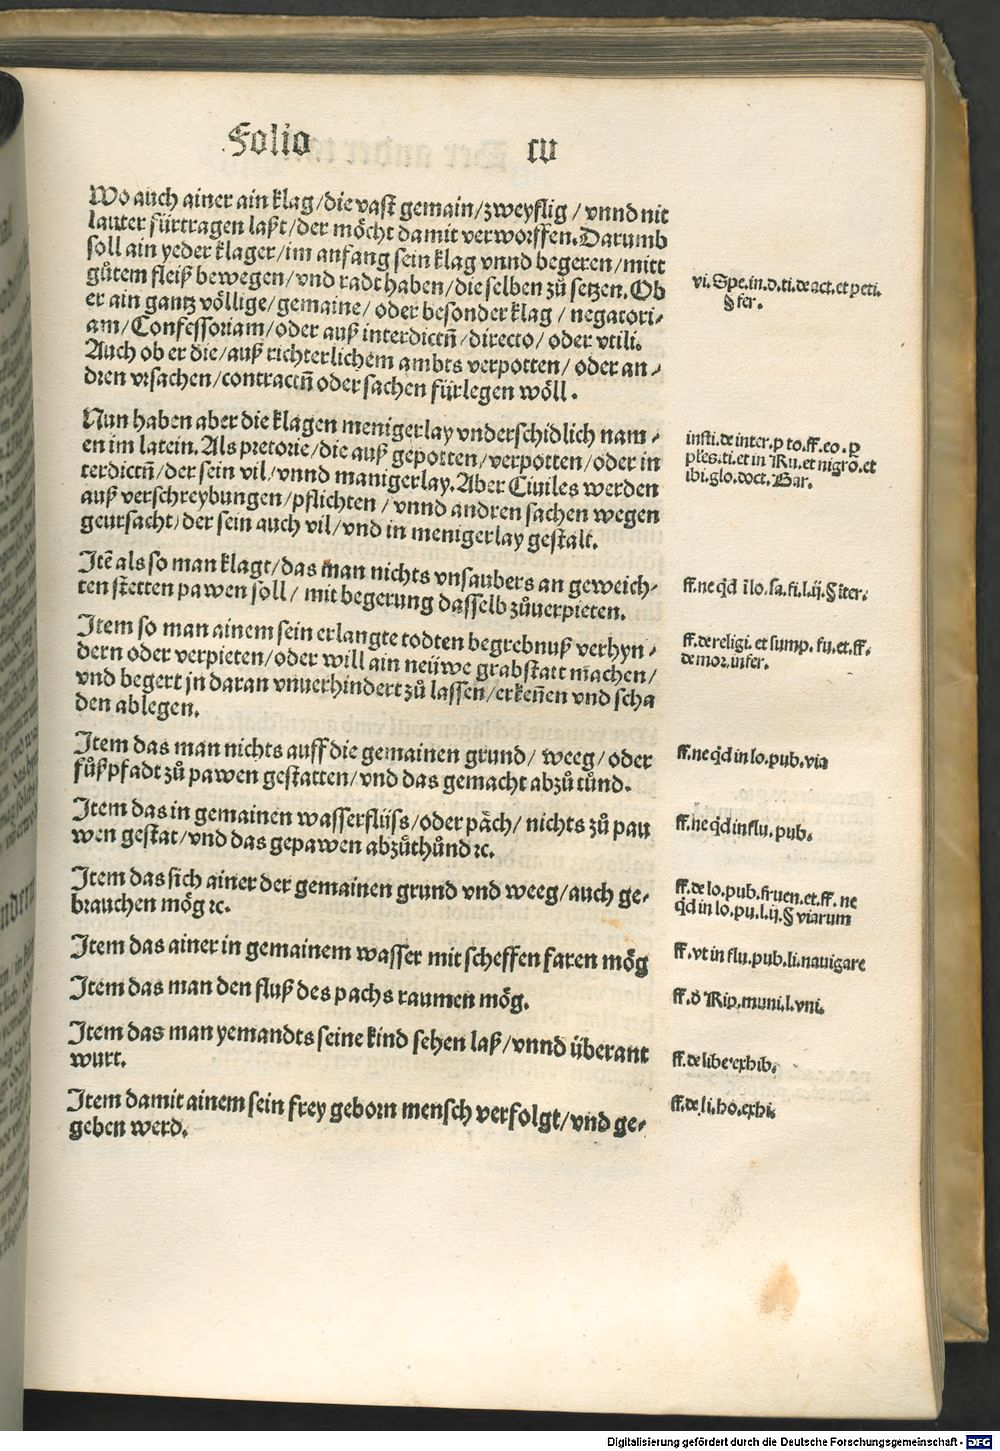 Folio
CV
Wo auch ainer ain klag/die vast gemain/zweyflig / vnnd nit
lauter fürtragen laßt/der möcht damit verworffen. Darumb
soll ain yeder klager/im anfang sein klag vnnd begeren/mitt
gůtem fleiß bewegen/vnd radt haben/die selben zů setzen. Ob
er ain gantz völlige/gemaine/ oder besonder klag / negatori-
am/Confessoriam/oder auß interdictñ/directo/ oder vtili.
Auch ob er die/auß richterlichem ambts verpotten/ oder an-
dren vrsachen/contractñ oder sachen fürlegen wöll.
vi. Spe. in. d. ti. de act. et peti.
§ fer.
Nun haben aber die klagen menigerlay vnderschidlich nam-
en im latein. Als pretorie/die auß gepotten/verpotten/oder in
terdictñ/der sein vil/vnnd manigerlay. Aber Ciuiles werden
auß verschreybungen/pflichten / vnnd andren sachen wegen
geursacht/der sein auch vil/vnd in menigerlay gestalt.
insti. de inter. p to. ff. eo. p
ples. ti. et in Ru. et nigro. et
ibi. glo. doct. Bar.
Itē als so man klagt/das man nichts vnsaubers an geweich-
ten stetten pawen soll/ mit begerung dasselb zůuerpieten.
ff. ne qd ī lo. sa. fi. l. ij. § iter.
Item so man ainem sein erlangte todten begrebnuß verhyn-
dern oder verpieten/oder will ain neüwe grabstatt machen/
vnd begert jn daran vnuerhindert zů lassen/erkeñen vnd scha
den ablegen.
ff. de religi. et sump. fu. et. ff.
de mor. infer.
Item das man nichts auff die gemainen grund/ weeg/oder
fůßpfadt zů pawen gestatten/vnd das gemacht abzů tůnd.
ff. ne qd in lo. pub. via
Item das in gemainen wasserflüss/oder päch/ nichts zů pau
wen gestat/vnd das gepawen abzůthůnd ꝛc.
ff. ne qd in flu. pub.
Item das sich ainer der gemainen grund vnd weeg/auch ge-
brauchen mög ꝛc.
ff. de lo. pub. fruen. et. ff. ne
qd in lo. pu. l. ij. § viarum
Item das ainer in gemainem wasser mit scheffen faren mög
ff. vt in flu. pub. li. nauigare
Item das man den fluß des pachs raumen mög.
ff. d Rip. muni. l. vni.
Item das man yemandts seine kind sehen laß/vnnd überant
wurt.
ff. de libe. exhib.
Item damit ainem sein frey geborn mensch verfolgt/vnd ge-
geben werd.
ff. de. li. ho. exhi.
Digitalisierung gefördert durch die Deutsche Forschungsgemeinschaft - DFG